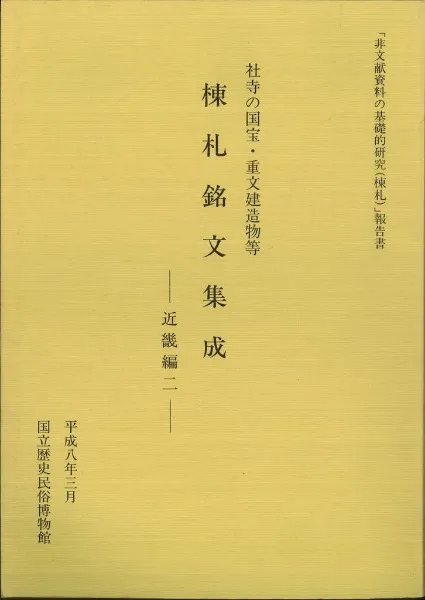 「非文献資料の基礎的研究(棟札)」報告書
社寺の国宝・重文建造物等
棟札銘文集成
―近畿編二―
平成八年三月
国立歴史民俗博物館